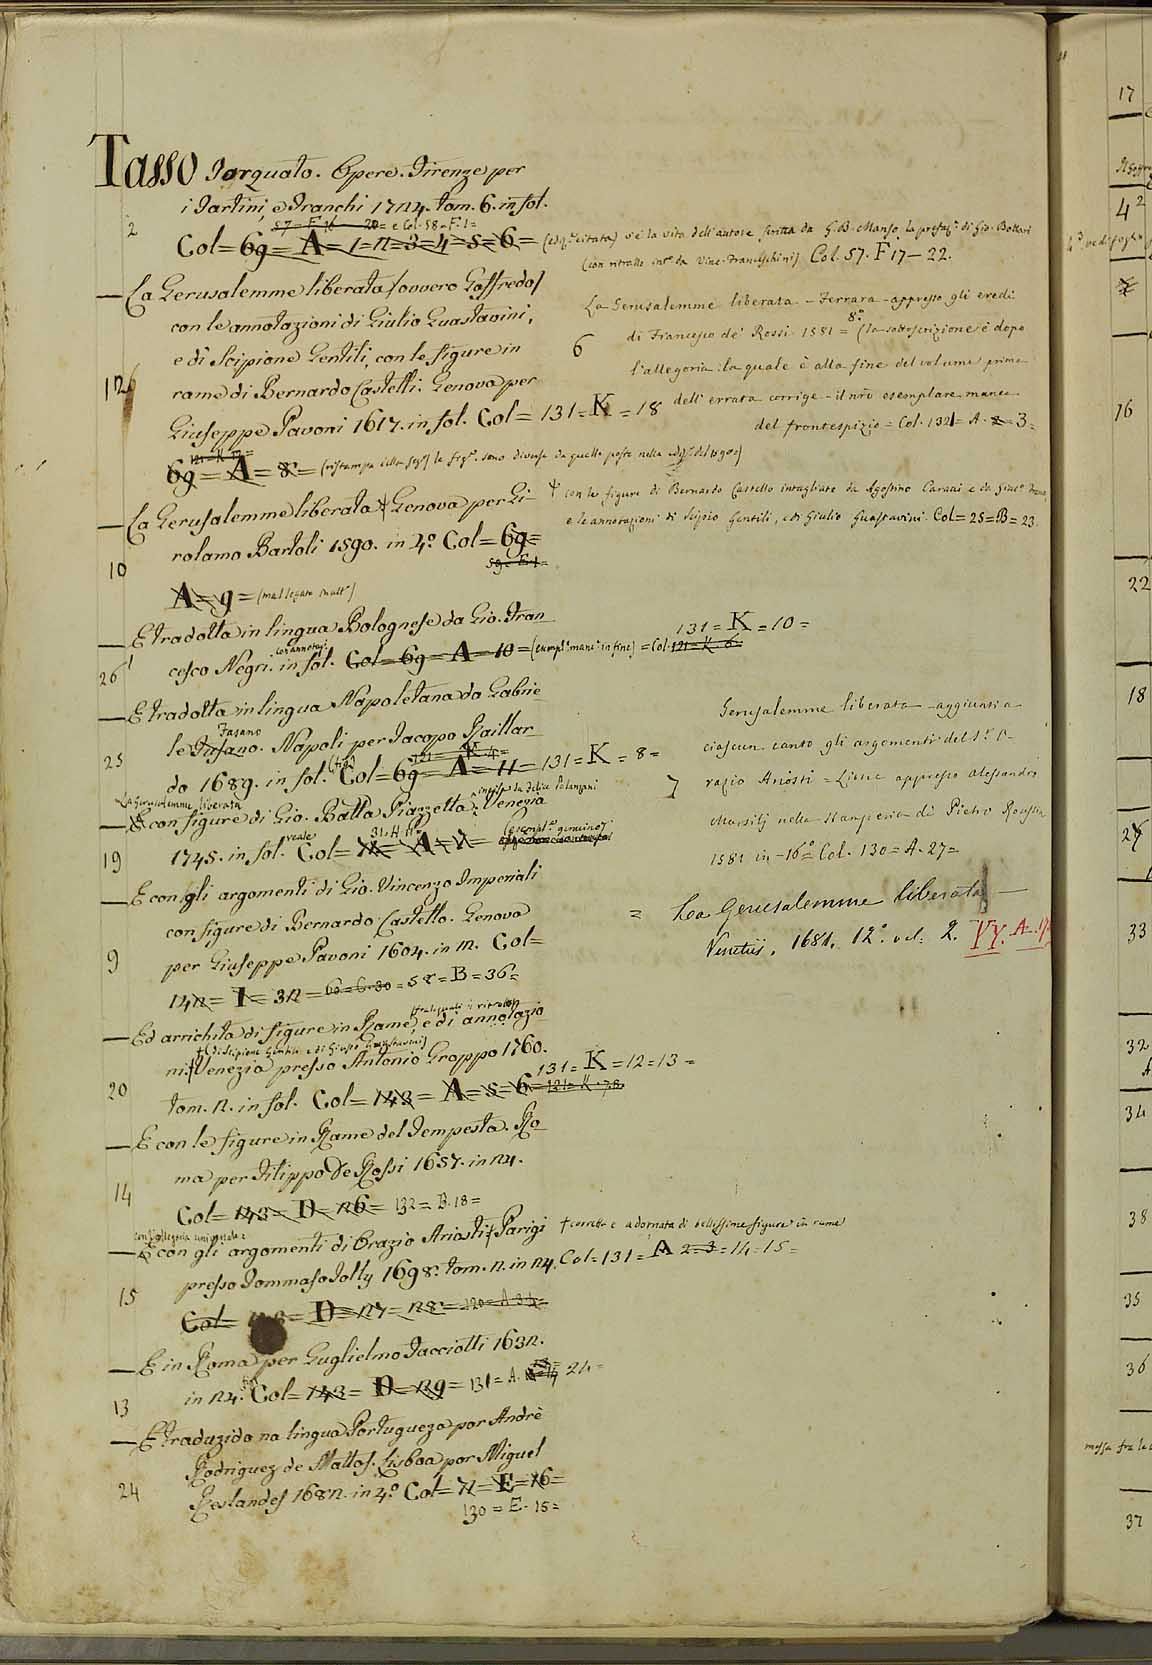 Tasso Torquato. Opere. Firenze per
i Tartini, e Franchi 1724. tom. 6. in fol.
2
57 = F. 16 — 20 = e Col. 58 = F. 1 =
Col = 69 = A = 1 = 2 = 3 = 4 = 5 = 6 =
v'è la vita dell'autore scritta da G. B. Manso, la prefaz.e di Gio. Bottari
(con ritratto da Vinc. Franceschini) Col. 57. F 17 — 22.
— La Gerusalemme liberata / ovvero Goffredo /
con le annotazioni di Giulio Guastavini,
e di Scipione Gentili, con le figure in
rame di Bernardo Castelli. Genova per
Giuseppe Pavoni 1617. in fol. Col = 131 = K = 18
69 = A = 8 = (ristampa le fig.e sono diverse da quelle poste nella del 1590)
12
— La Gerusalemme liberata Genova per Gi-
rolamo Bartoli 1590. in 4.o Col = 69 =
59 = E. 1 =
10
A = 9 = (mal legato)
— E tradotta in lingua Bolognese da Gio. Fran
cesco Negri. in fol. Col = 69 = A = 10 = = Col. 121 = K. 6 =
131 = K = 10 =
26
— E tradotta in lingua Napoletana da Gabrie
le Fasano. Napoli per Jacopo Raillar
do 1689. in fol. (fig) Col = 69 = A = 11 = 131 = K = 8 =
25
La Gerusalemme liberata
— E con figure di Gio. Batta Piazzetta. Venezia
1745. in fol. reale Col =
19
— E con gli argomenti di Gio. Vincenzo Imperiali
con figure di Bernardo Castello. Genova
per Giuseppe Pavoni 1604. in 12. Col =
142 = I = 32 = = 58 = B = 36 =
9
— Ed arricchita di figure in Rame, e di annotazio
(di Scipione Gentili e di Giulio Guastavini)
ni Venezia presso Antonio Groppo 1760.
tom. 2. in fol. Col = 143 = A = 5 = 6 =
131 = K = 12 = 13 =
20
— E con le figure in Rame del Tempesta. Ro
ma per Filippo De Rossi 1657. in 24.
Col = 143 = D = 126 = 132 = B. 18 =
14
con l'allegoria universale
— E con gli argomenti di Orazio Ariosti Parigi † corretta e adornata di bellissime figure in rame
presso Tommaso Jolly 1698. tom. 2. in 24. Col = 131 = A 2 = 3 = 14 = 15 =
Col = = D = 127 = 128 =
15
— E in Roma per Guglielmo Facciotti 1632.
in 24. Col = 143 = D = 129 = 131 = A. 24 =
13
— E traduzido na lingua Portugueza por Andrè
Rodriguez de Mattos. Lisboa por Miguel
Deslandes 1682. in 4.o Col = 71 = E = 16 =
130 = E. 15 =
24
La Gerusalemme liberata — Ferrara — appresso gli eredi
di Francesco de' Rossi 1581 = 8.o (la sottoscrizione è dopo
l'allegoria: la quale è alla fine del volume prima
dell'errata corrige — il nro esemplare manca
del frontespizio = Col. 132 = A = 3 =
6
† con le figure di Bernardo Castello intagliate da Agostino Caracci e da Giac.o
e le annotazioni di Scipio Gentili, e di Giulio Guastavini. Col = 25 = B = 23.
Gerusalemme liberata — aggiunti a
ciascun canto gli argomenti del S.r O-
razio Ariosti = appresso Alessandro
Marsilj nella stamperia di Pietro
1581 in — 16.o Col. 130 = A. 27 =
7
= La Gerusalemme liberata —
Venetiis. 1681. 12.o vol. 2. VY. A.
17
4 2
16
22
18
33
32
34
38
35
36
messa tra le
37